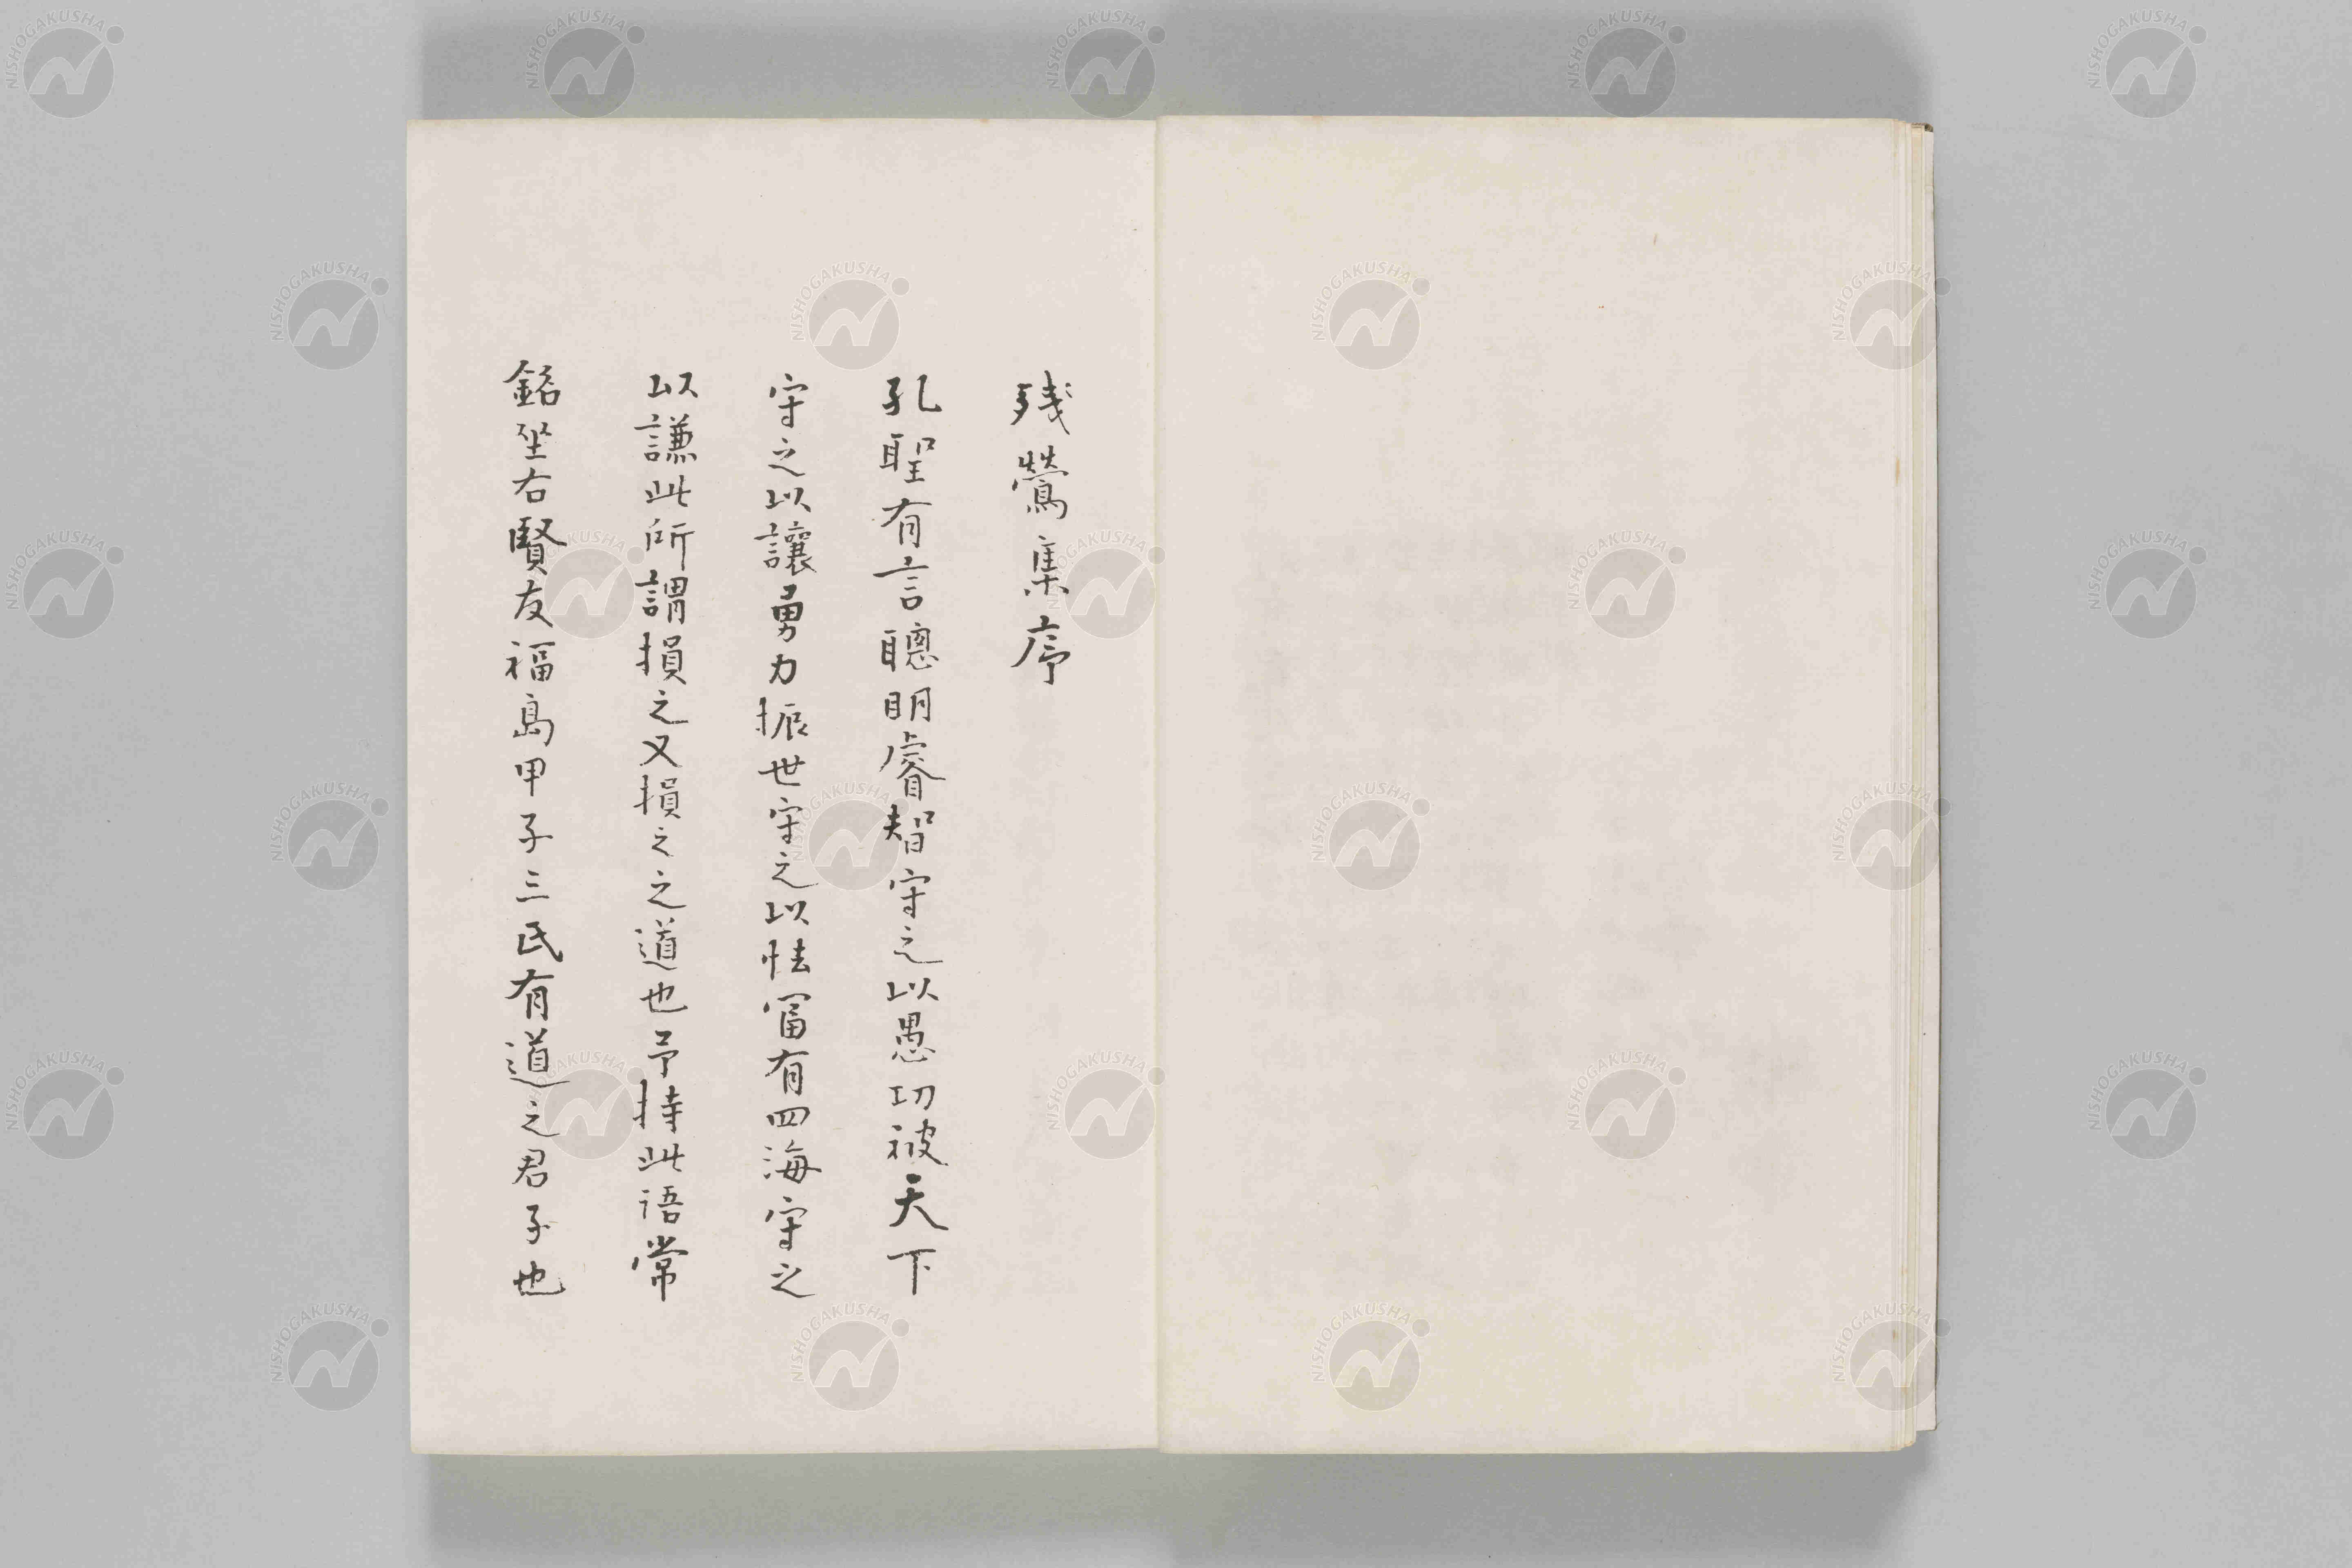 残鶯集序
孔聖有言聰明睿智守之以愚功被天下
守之以讓勇力振世守之以怯富有四海守之
以謙此所謂損之又損之之道也予持此語常
銘坐右賢友福島甲子三氏有道之君子也
NISHOGAKUSHA